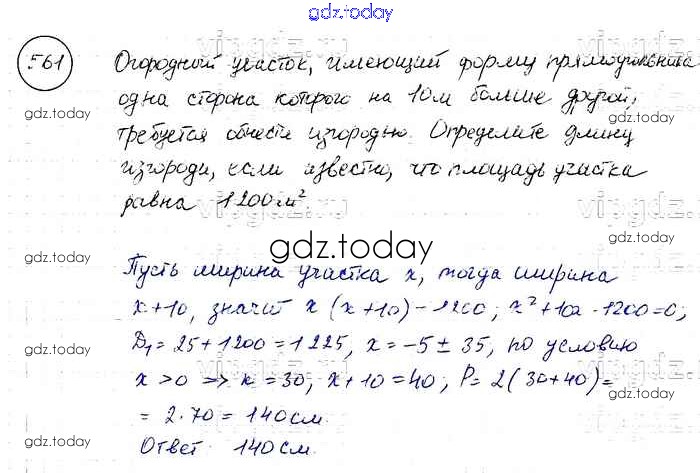 gdz.today
561
Огородный участок, имеющий форму прямоугольника
одна сторона которого на 10м больше другой,
требуется обнести изгородью. Определите длину
изгороди, если известно, что площадь участка
равна 1200 м².
gdz.today
Пусть ширина участка x, тогда ширина
x+10, значит x(x+10)-1200; x²+10x-1200=0;
D₁=25+1200=1225, x=-5±35, по условию
x>0 => x=30; x+10=40; P=2(30+40)=
=2·70=140см.
Ответ 140см.
gdz.today
gdz.today
gdz.today
gdz.today
gdz.today
vipgdz.ru
vipgdz.ru
vipgdz.ru
vipgdz.ru